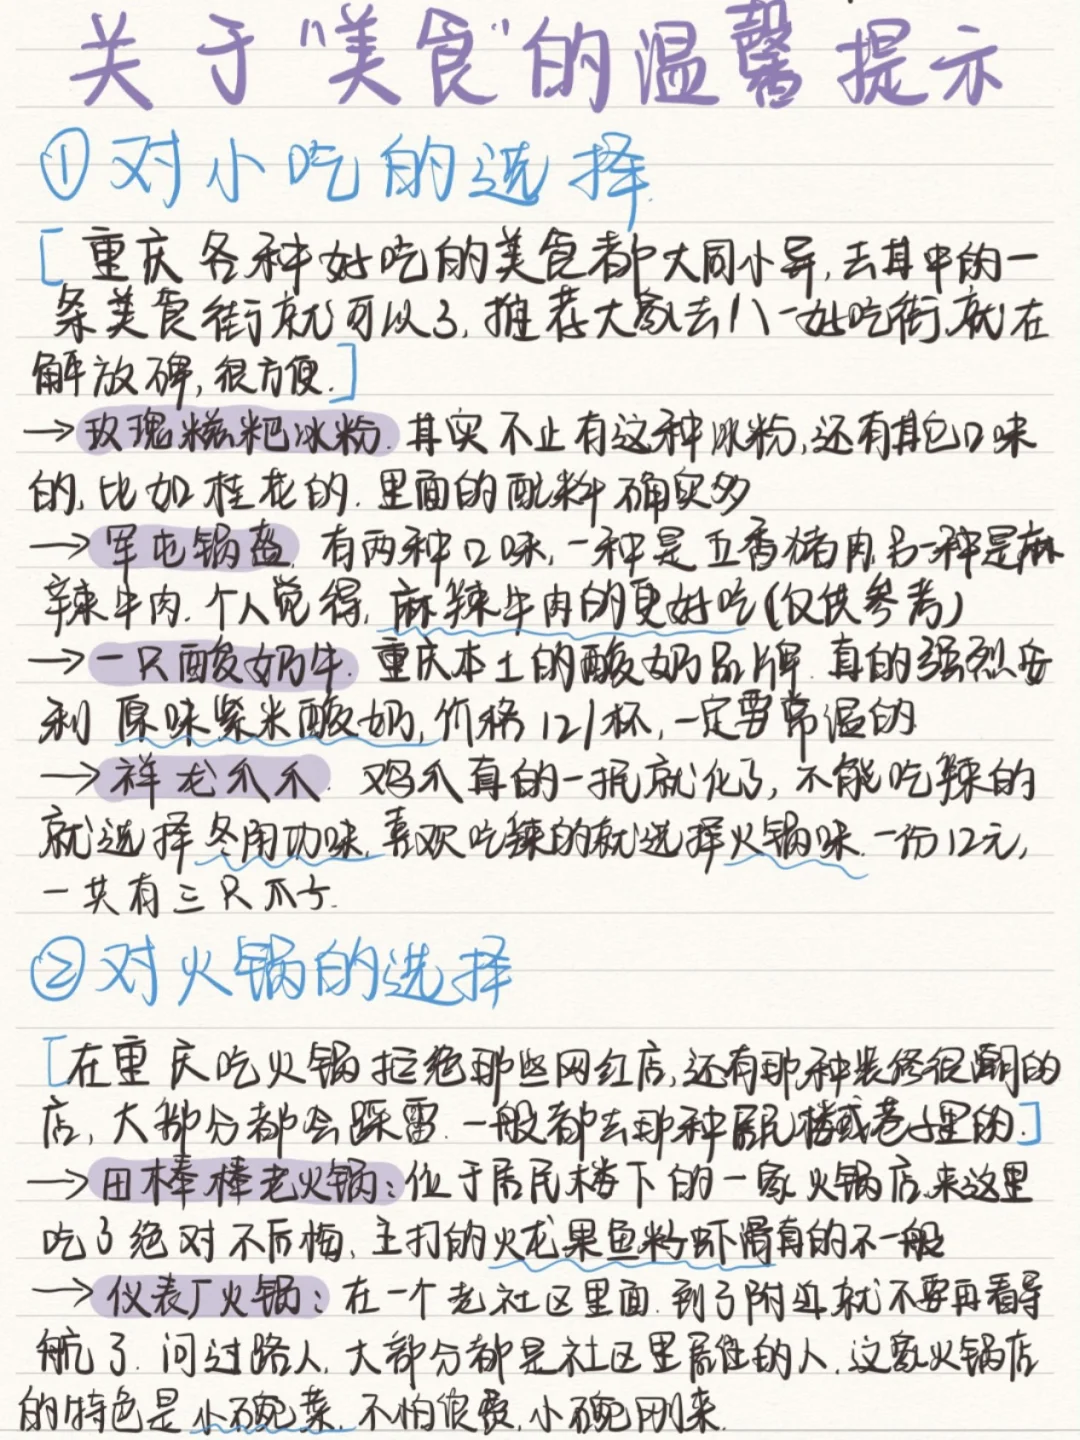 关于“美食”的温馨提示
①对小吃的选择
[重庆各种好吃的美食都大同小异,去其中的一
条美食街就可以了,推荐大家去八一好吃街,就在
解放碑,很方便.]
→玫瑰糍粑冰粉.其实不止有这种冰粉,还有其它口味
的,比如桂花的.里面的配料确实多
→军屯锅盔.有两种口味,一种是五香猪肉,另一种是麻
辣牛肉.个人觉得,麻辣牛肉的更好吃(仅供参考)
→一只酸奶牛.重庆本土的酸奶品牌.真的强烈安
利 原味紫米酸奶,价格12/杯,一定要常温的
→祥龙爪爪.鸡爪真的一抿就化了,不能吃辣的
就选择冬阴功味,喜欢吃辣的就选择火锅味.一份12元,
一共有三只爪子.
②对火锅的选择
[在重庆吃火锅拒绝那些网红店,还有那种装修很潮的
店,大部分都会踩雷.一般都去那种居民楼或巷子里的.]
→田棒棒老火锅:位于居民楼下的一家火锅店,来这里
吃了绝对不后悔,主打的火龙果鱼籽虾滑真的不一般
→仪表厂火锅:在一个老社区里面.到了附近就不要再看导
航了.问过路人,大部分都是社区里居住的人.这家火锅店
的特色是小碗菜,不怕浪费,小碗刚来.